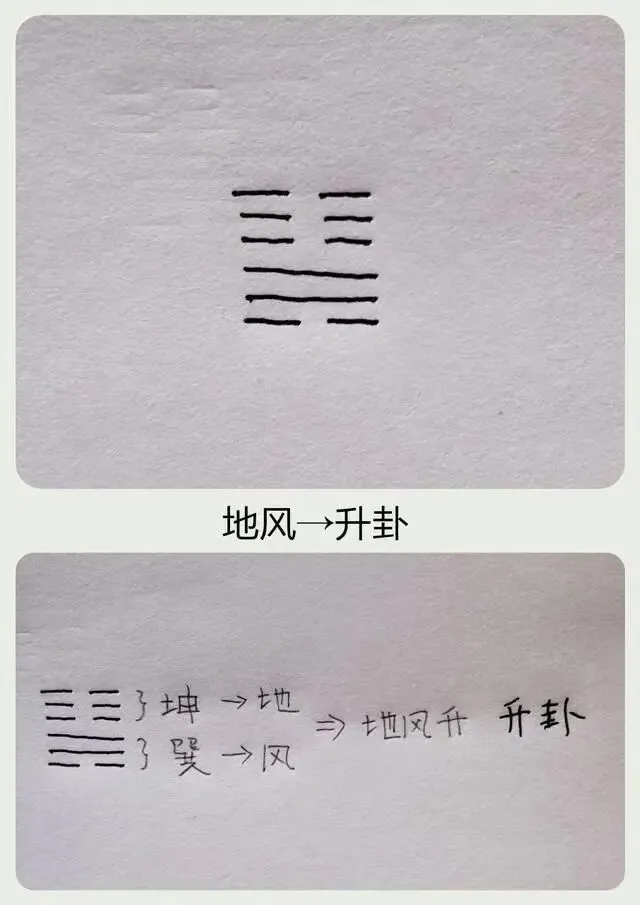 地风→升卦
坤→地
巽→风
⇒地风升 升卦